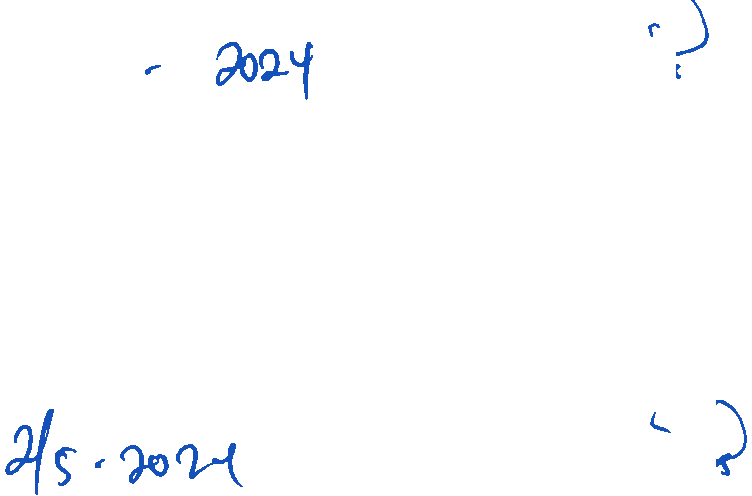 - 2024 ?
2/5 - 2024